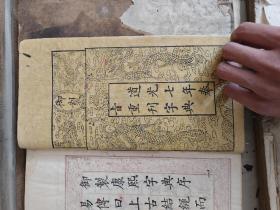 道光七年奉
旨重刊字典
御製康熙字典序
易傳曰上古結繩而